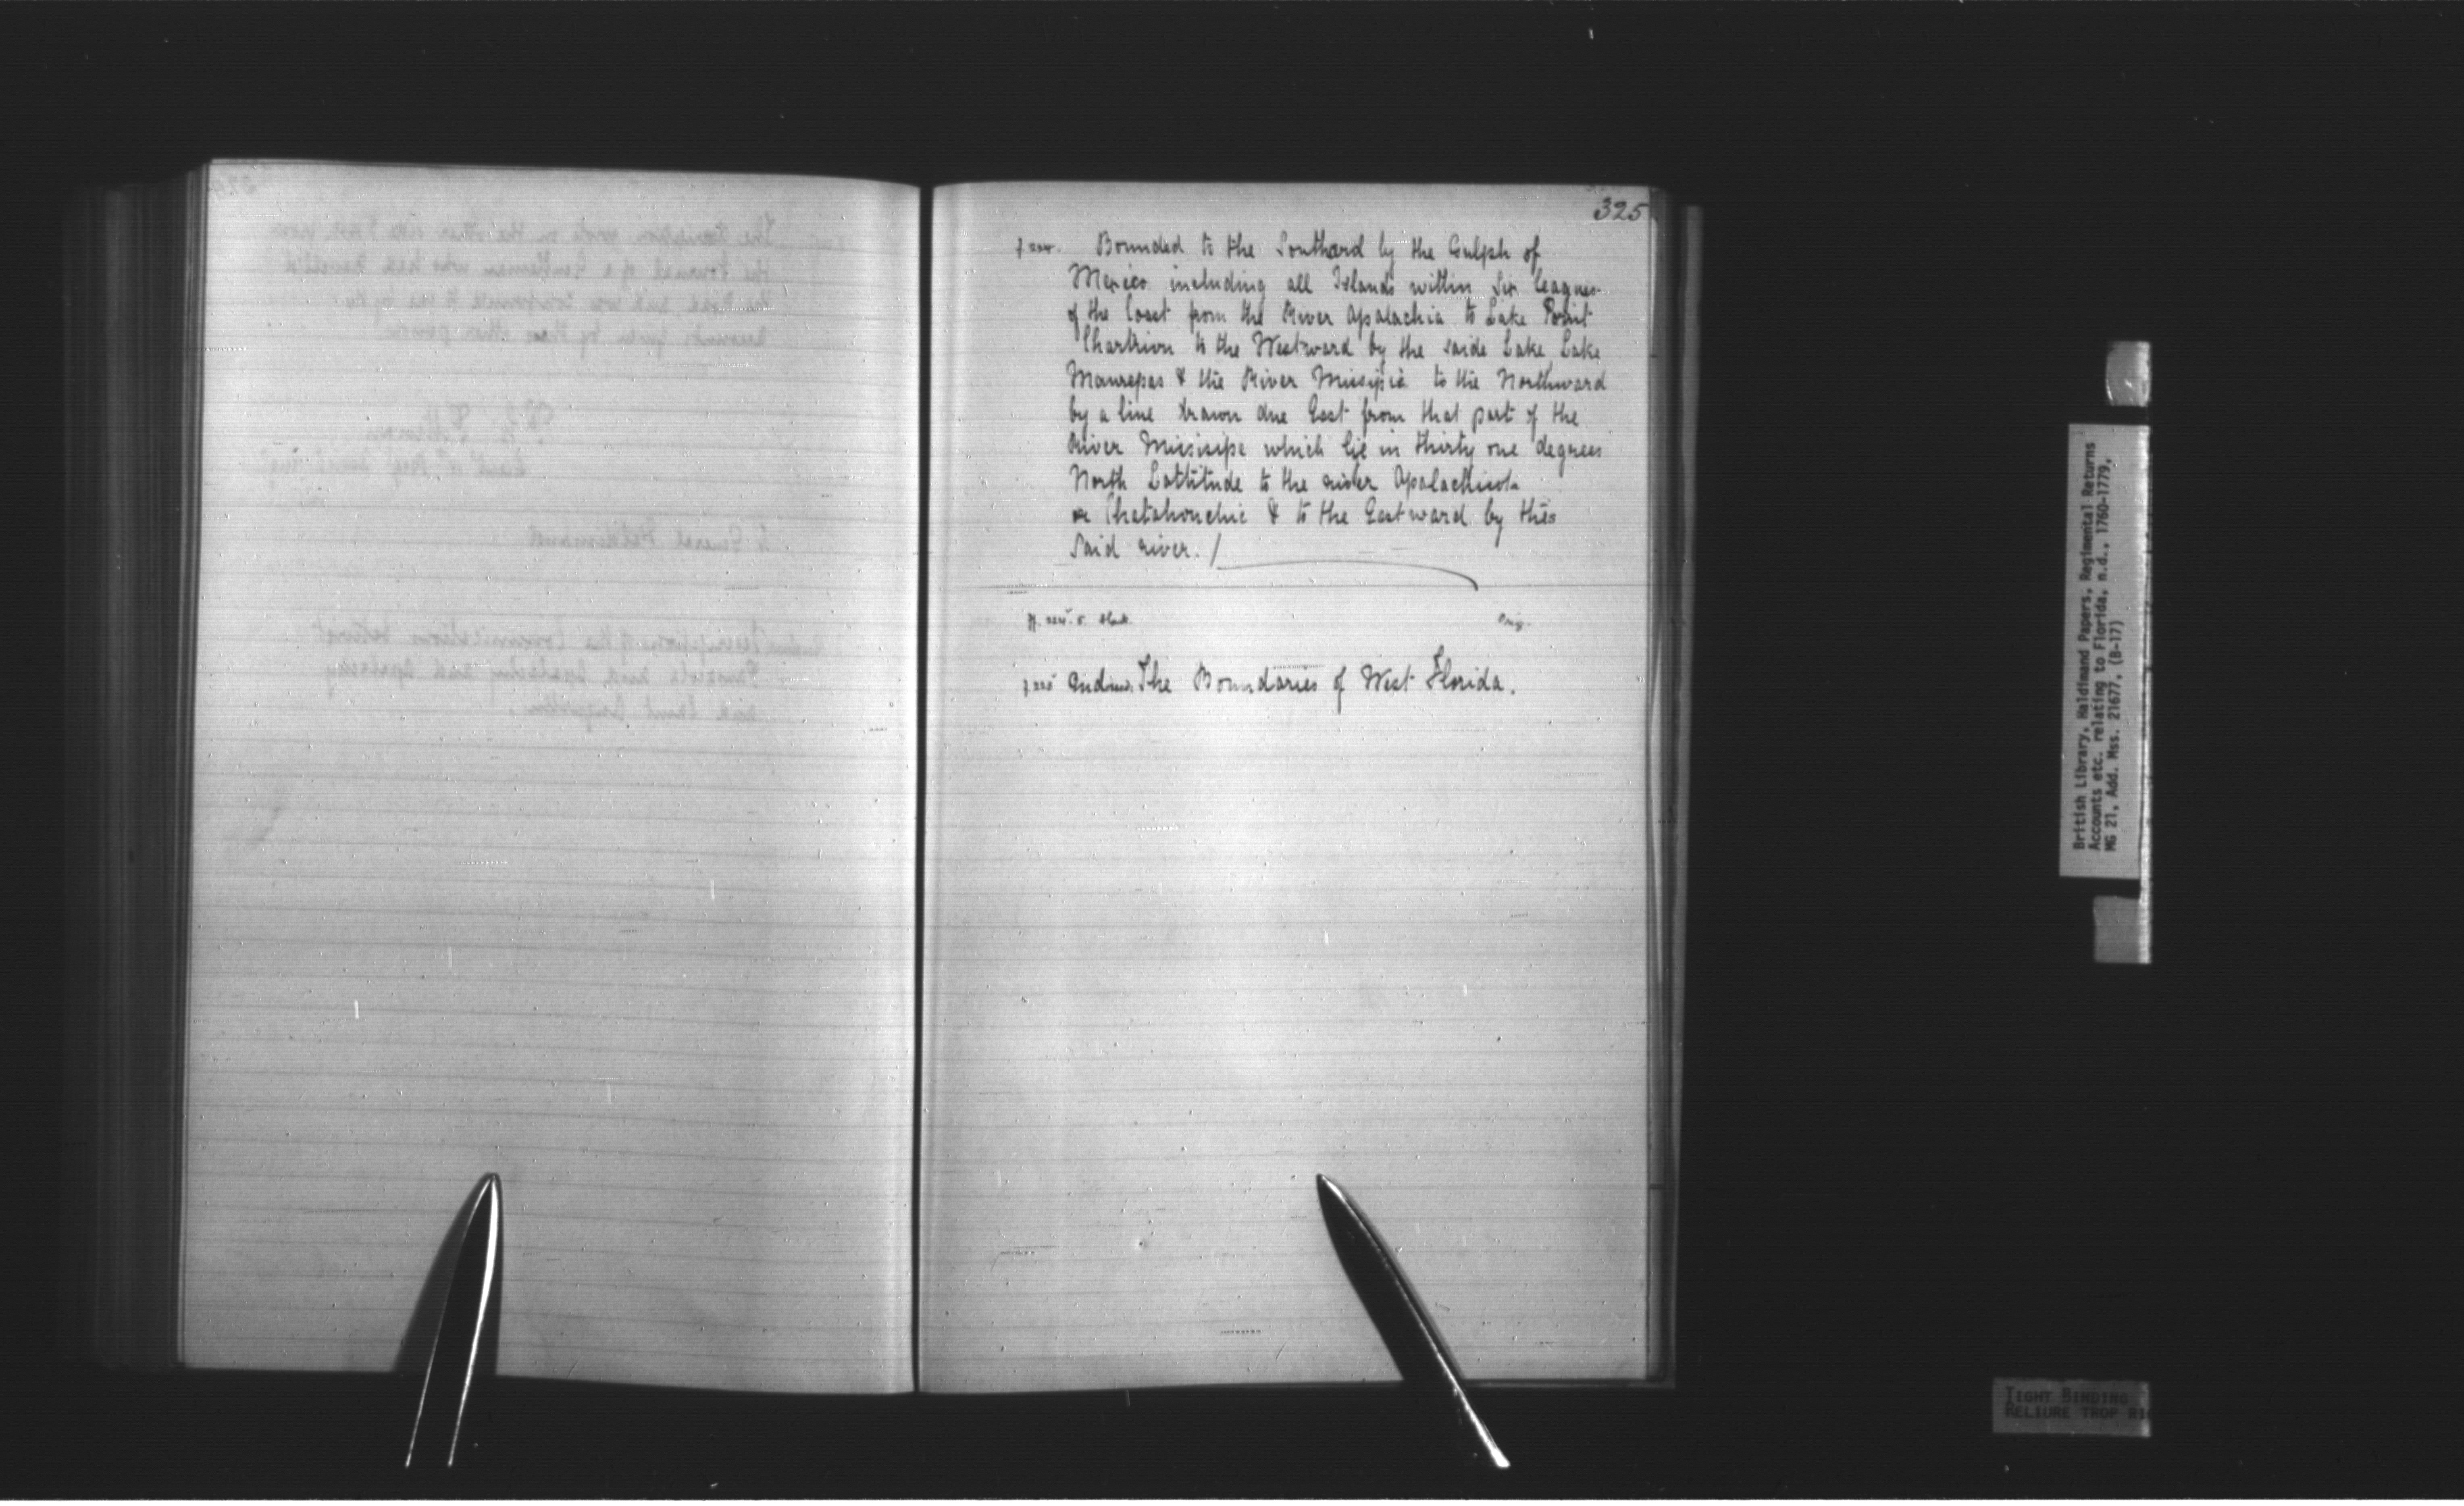 325
f 224. Bounded to the Southard by the Gulph of
Mexico including all Islands within Six leagues
of the Coast from the River Apalachia to Lake Point
Chartrion to the Westward by the saide Lake, Lake
Maurepas & the River Missipie to the Northward
by a line drawn due East from that part of the
River Missisipe which lie in thirty one degrees
North Lattitude to the river Apalachicola
or Chatahouchie & to the Eastward by this
Said river. /
Orig.
f 225 The Boundaries of West Florida.
British Library, Haldimand Papers, Regimental Returns
Accounts etc. relating to Florida, n.d., 1760-1779,
MG 21, Add. Mss. 21677, (B-17)
TIGHT BINDING
RELIURE TROP RI